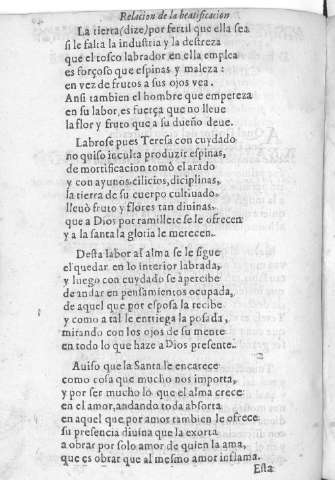 Relacion de la beatificacion
La tierra(dize)por fertil que ella sea
si le falta la industria y la destreza
que el tosco labrador en ella emplea
es forçoso que espinas y maleza:
en vez de frutos a sus ojos vea.
Ansi tambien el hombre que empereza
en su labor, es fuerça que no lleue
la flor y fruto que a su dueño deue.
Labrose pues Teresa con cuydado
no quiso inculta produzir espinas,
de mortificacion tomò el arado
y con ayunos cilicios, diciplinas,
la tierra de su cuerpo cultiuado.
lleuò fruto y flores tan diuinas.
que a Dios por ramillete se le ofrecen
y a la santa la gloria le merecen.
Desta labor al alma se le sigue
el quedar en lo interior labrada,
y luego con cuydado se apercibe
de andar en pensamientos ocupada,
de aquel que por esposa la recibe
y como a tal le entriega la posada,
mirando con los ojos de su mente
en todo lo que haze a Dios presente.
Auiso que la Santa le encarece
como cosa que mucho nos importa,
y por ser mucho lo que el alma crece
en el amor, andando toda absorta
en aquel que por amor tambien le ofrece
su presencia diuina que la exorta
a obrar por solo amor de quien la ama,
que es obrar que al mesmo amor inflama.
Esta